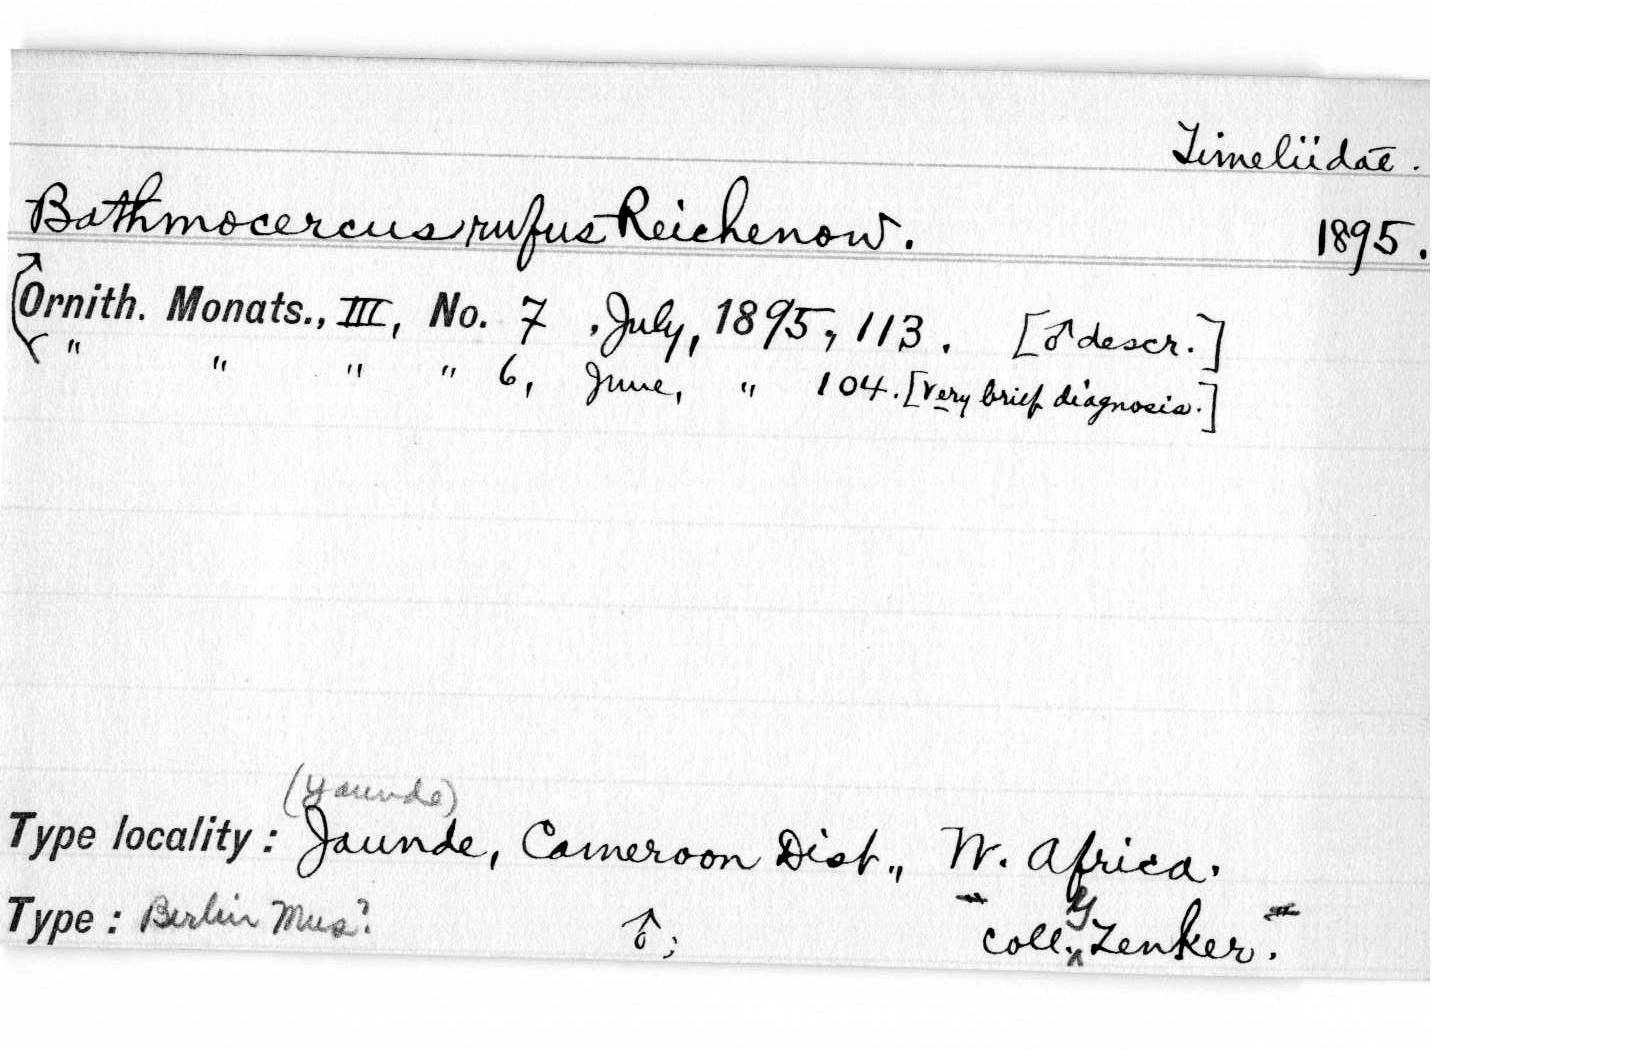 Timeliidae.
Bathmocercus rufus Reichenow. 1895.
Ornith. Monats., III, No. 7, July, 1895, 113. [♂ descr.]
" " " " 6, June, " 104. [very brief diagnosis.]
(Yaunde)
Type locality: Jaunde, Cameroon Dist., W. Africa.
Type: Berlin Mus? ♂; coll. G. Zenker.